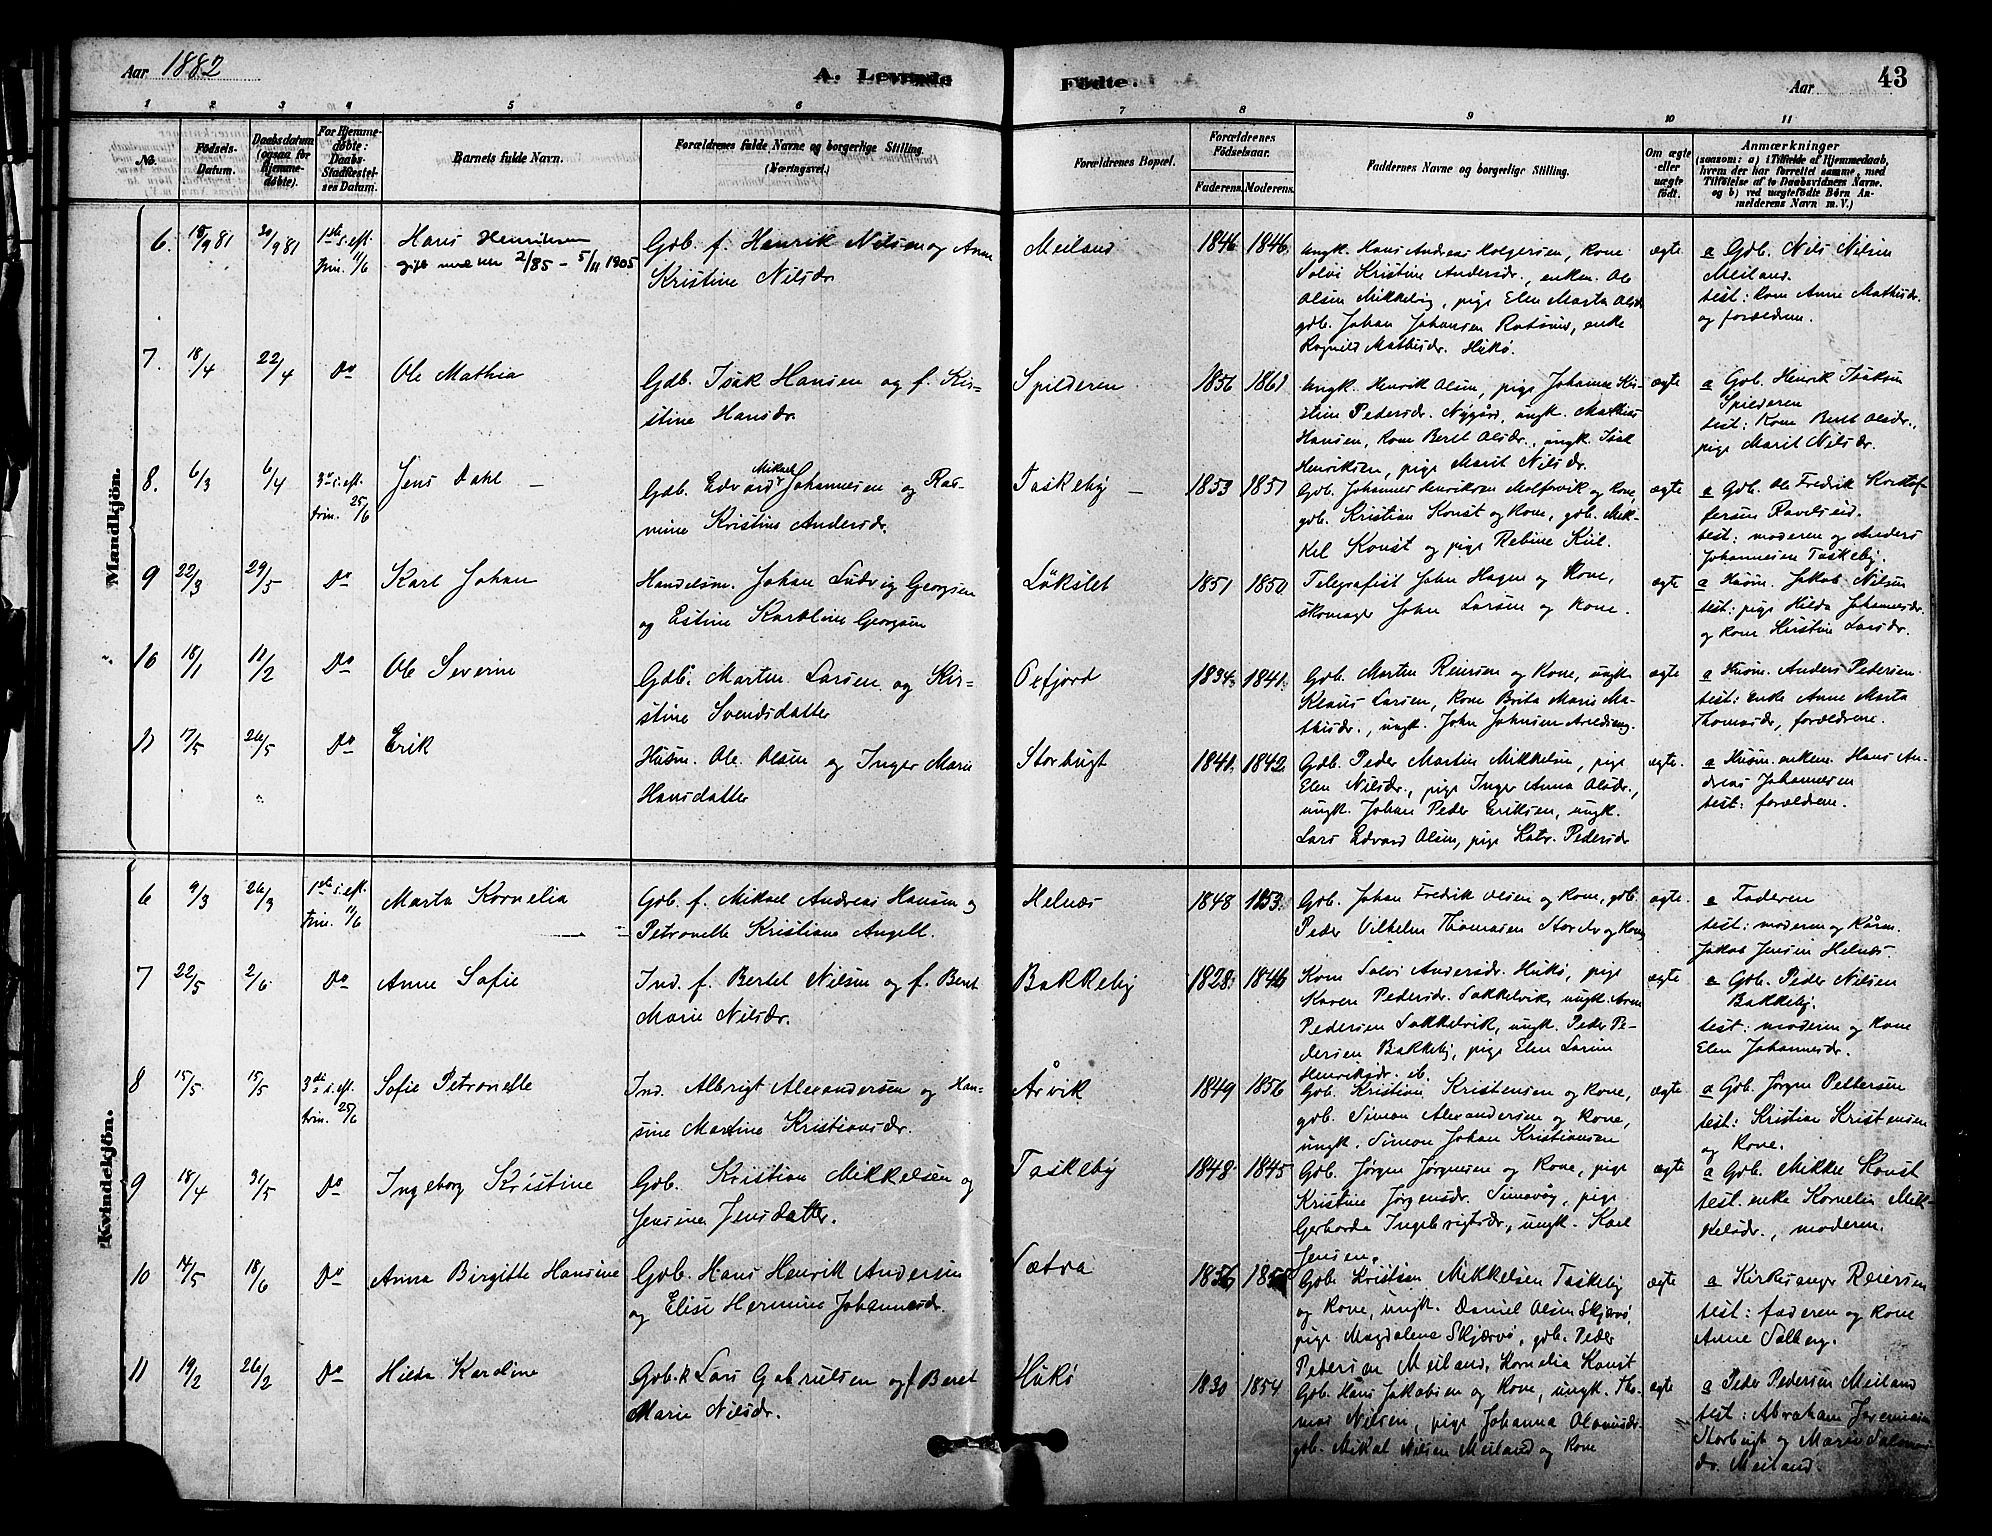 Aar 1882
A. Levende
Fødte.
Aar
43
1 2 3 4 5 6 7 8 9 10 11
No.
Fødsels-
Datum.
Daabsdatum
(ogsaa for
Hjemme-
døbte).
For Hjemme-
døbte:
Daabs-
Stadfæstel-
ses Datum.
Barnets fulde Navn.
Forældrenes fulde Navne og borgerlige Stilling.
(Næringsvei.)
Forældrenes Bopæl.
Forældrenes
Fødselsaar.
Faderens. Moderens.
Faddernes Navne og borgerlige Stilling.
Om ægte
eller
uægte
født.
Anmærkninger
(saasom: a) i Tilfælde af Hjemmedaab,
hvem der har forrettet samme, med
Tilføielse af to Daabsvidners Navne.
og b) ved uægtefødte Børn An-
melderens Navn m. V.)
Mandkjön.
6. 18/9 81 30/9 81 1ste s. eft.
trin. 11/6
Hans Henriksen
gift 2/85 – 5/11 1905
Gdb. f. Henrik Nilsen og Anne
Kristine Nilsdr.
Meiland
1846 1846
ungk. Hans Andreas Holgersen, kone
Solvi Kristine Andersdr., enkem. Ole
Olsen Mikkelvig, pige Elen Marta Olsdr.
gdb. Johan Johansen Rotsund, enke
Ragnild Mathisdr. Hukø.
ægte
a Gdb. Nils Nilsen
Meiland
test: kone Anne Mathisdr.
og forældrene.
7. 18/4 22/4 Do
Ole Mathia
Gdb. Isak Hansen og f. Kir-
stine Hansdr.
Spilderen
1856 1861
ungk. Henrik Olsen, pige Johanne Kir-
stine Pedersdr. Nygård, ungk. Mathias
Hansen, kone Beret Olsdr., ungk. Isak
Henriksen, pige Marit Nilsdr.
ægte
a Gdb. Henrik Isaksen
Spilderen
test: kone Beret Olsdr.,
pige Marit Nilsdr.
8. 6/3 6/4 3die s. eft.
trin. 25/6
Jens Dahl –
Gdb. Edvard Mikael Johannesen og Ras-
mine Kristine Andersdr.
Taskeby –
1853 1851
Gdb. Johannes Henriksen Molfervik og kone,
gdb. Kristian Konst og kone, gdb. Mik-
kel Konst og pige Rebine Kiil.
ægte
a Gdb. Ole Fredrik Kristof-
fersen Ravelseid.
test: moderen og Anders
Johannesen Taskeby.
9 22/3 29/5 Do
Karl Johan
Handelsm. Johan Ludvig Georgsen
og Estine Karoline Georgsen
Løkslet
1851 1850
Telegrafist John Hagen og kone,
skomager John Larsen og kone.
ægte
a Husm. Jakob Nilsen
test: pige Hilda Johannesdr.
og kone Kirstine Larsdr.
10 18/1 11/2 Do
Ole Severin
Gdb. Morten Larsen og Kir-
stine Svendsdatter
Oxfjord
1834 1841
Gdb. Morten Reiersen og kone, ungk.
Klaus Larsen, kone Brita Marie Ma-
thisdr., ungk. John Johnsen
ægte
a Husm. Anders Pedersen
test: enke Anne Marta
Thomasdr., forældrene.
11 17/5 26/5 Do
Erik
Husm. Ole Olsen og Inger Marie
Hansdatter
Storbugt
1841 1842
Gdb. Peder Martin Mikkelsen, pige
Elen Nilsdr., pige Inger Anna Olsdr.,
ungk. Johan Peder Eriksen, ungk.
Lars Edvard Olsen, pige Katr. Pedersdr
ægte
a Husm. enkem. Hans An-
dreas Johannesen
test: forældrene.
Kvindekjön.
6 9/3 26/3 1ste s. eft.
trin. 11/6
Marta Kornelia
Gdb. f. Mikael Andreas Hansen og
Petronelle Kristiane Angell.
Helnæs
1848 1853
Gdb. Johan Fredrik Olsen og kone, gdb.
Peder Vilhelm Thomasen Storslet og kone
ægte
a Faderen
test: moderen og
Jakob Jensen Helnæs.
7 22/5 2/6 Do
Anne Sofie
Ind. f. Bertel Nilsen og f. Beret
Marie Nilsdr.
Bakkeby
1828 1846
Kone Solvi Andersdr. Hukø, pige
Karen Pedersdr. Sakkelvik, ungk. Arne
Pedersen Sakkelvik, ungk. Peder Pe-
dersen Bakkeby, pige Elen Larine
Henriksdr.
ægte
a Gdb. Peder Nilsen
Bakkeby.
test: moderen og kone
Elen Johannesdr.
8 15/5 15/5 3die s. eft.
trin. 25/6
Sofie Petronelle
Ind. Albrigt Alexandersen og Han-
sine Martine Kristiansdr.
Årvik
1849 1856
Gdb. Kristian Kristensen og kone,
gdb. Simon Alexandersen og kone,
ungk. Simon Johan Kristiansen
ægte
a Gdb. Jørgen Pettersen
test: Kristian Kristensen
og kone.
9 18/4 31/5 Do
Ingeborg Kristine
Gdb. Kristian Mikkelsen og
Jensine Jensdatter.
Taskeby
1848 1845
Gdb. Jørgen Jørgensen og kone, pige
Kristine Jørgensdr. Simavåg, pige
Gerharda Ingebrigtsdr., ungk. Karl
Jensen.
ægte
a Gdb. Mikkel Konst
test. enke Kornelia Mik-
kelsdr., moderen.
10 14/5 18/6 Do
Anna Birgitte Hansine
Gdb. Hans Henrik Andersen
og Elise Hermine Johannesdr.
Sætra
1856 1858
Gdb. Kristian Mikkelsen Taskeby
og kone, ungk. Daniel Olsen Skjærvø,
pige Magdalena Skjærvø, gdb. Peder
Pedersen Meiland, Kornelia Konst
ægte
a Kirkesanger Reiersen
test: faderen og kone
Anne Solberg.
11 19/2 26/2 Do
Hilda Karoline
Gdb. k Lars Gabrielsen og f Beret
Marie Nilsdr.
Hukø
1830 1854
Gdb. Hans Jakobsen og kone, ungk. Tho-
mas Nilsen, pige Johanna
gdb. Mikal Nilsen Meiland og kone
ægte
a Peder Pedersen Meiland
test: Abraham Jeremiasen
Storbugt og Marie Salomons-
dr. Meiland.